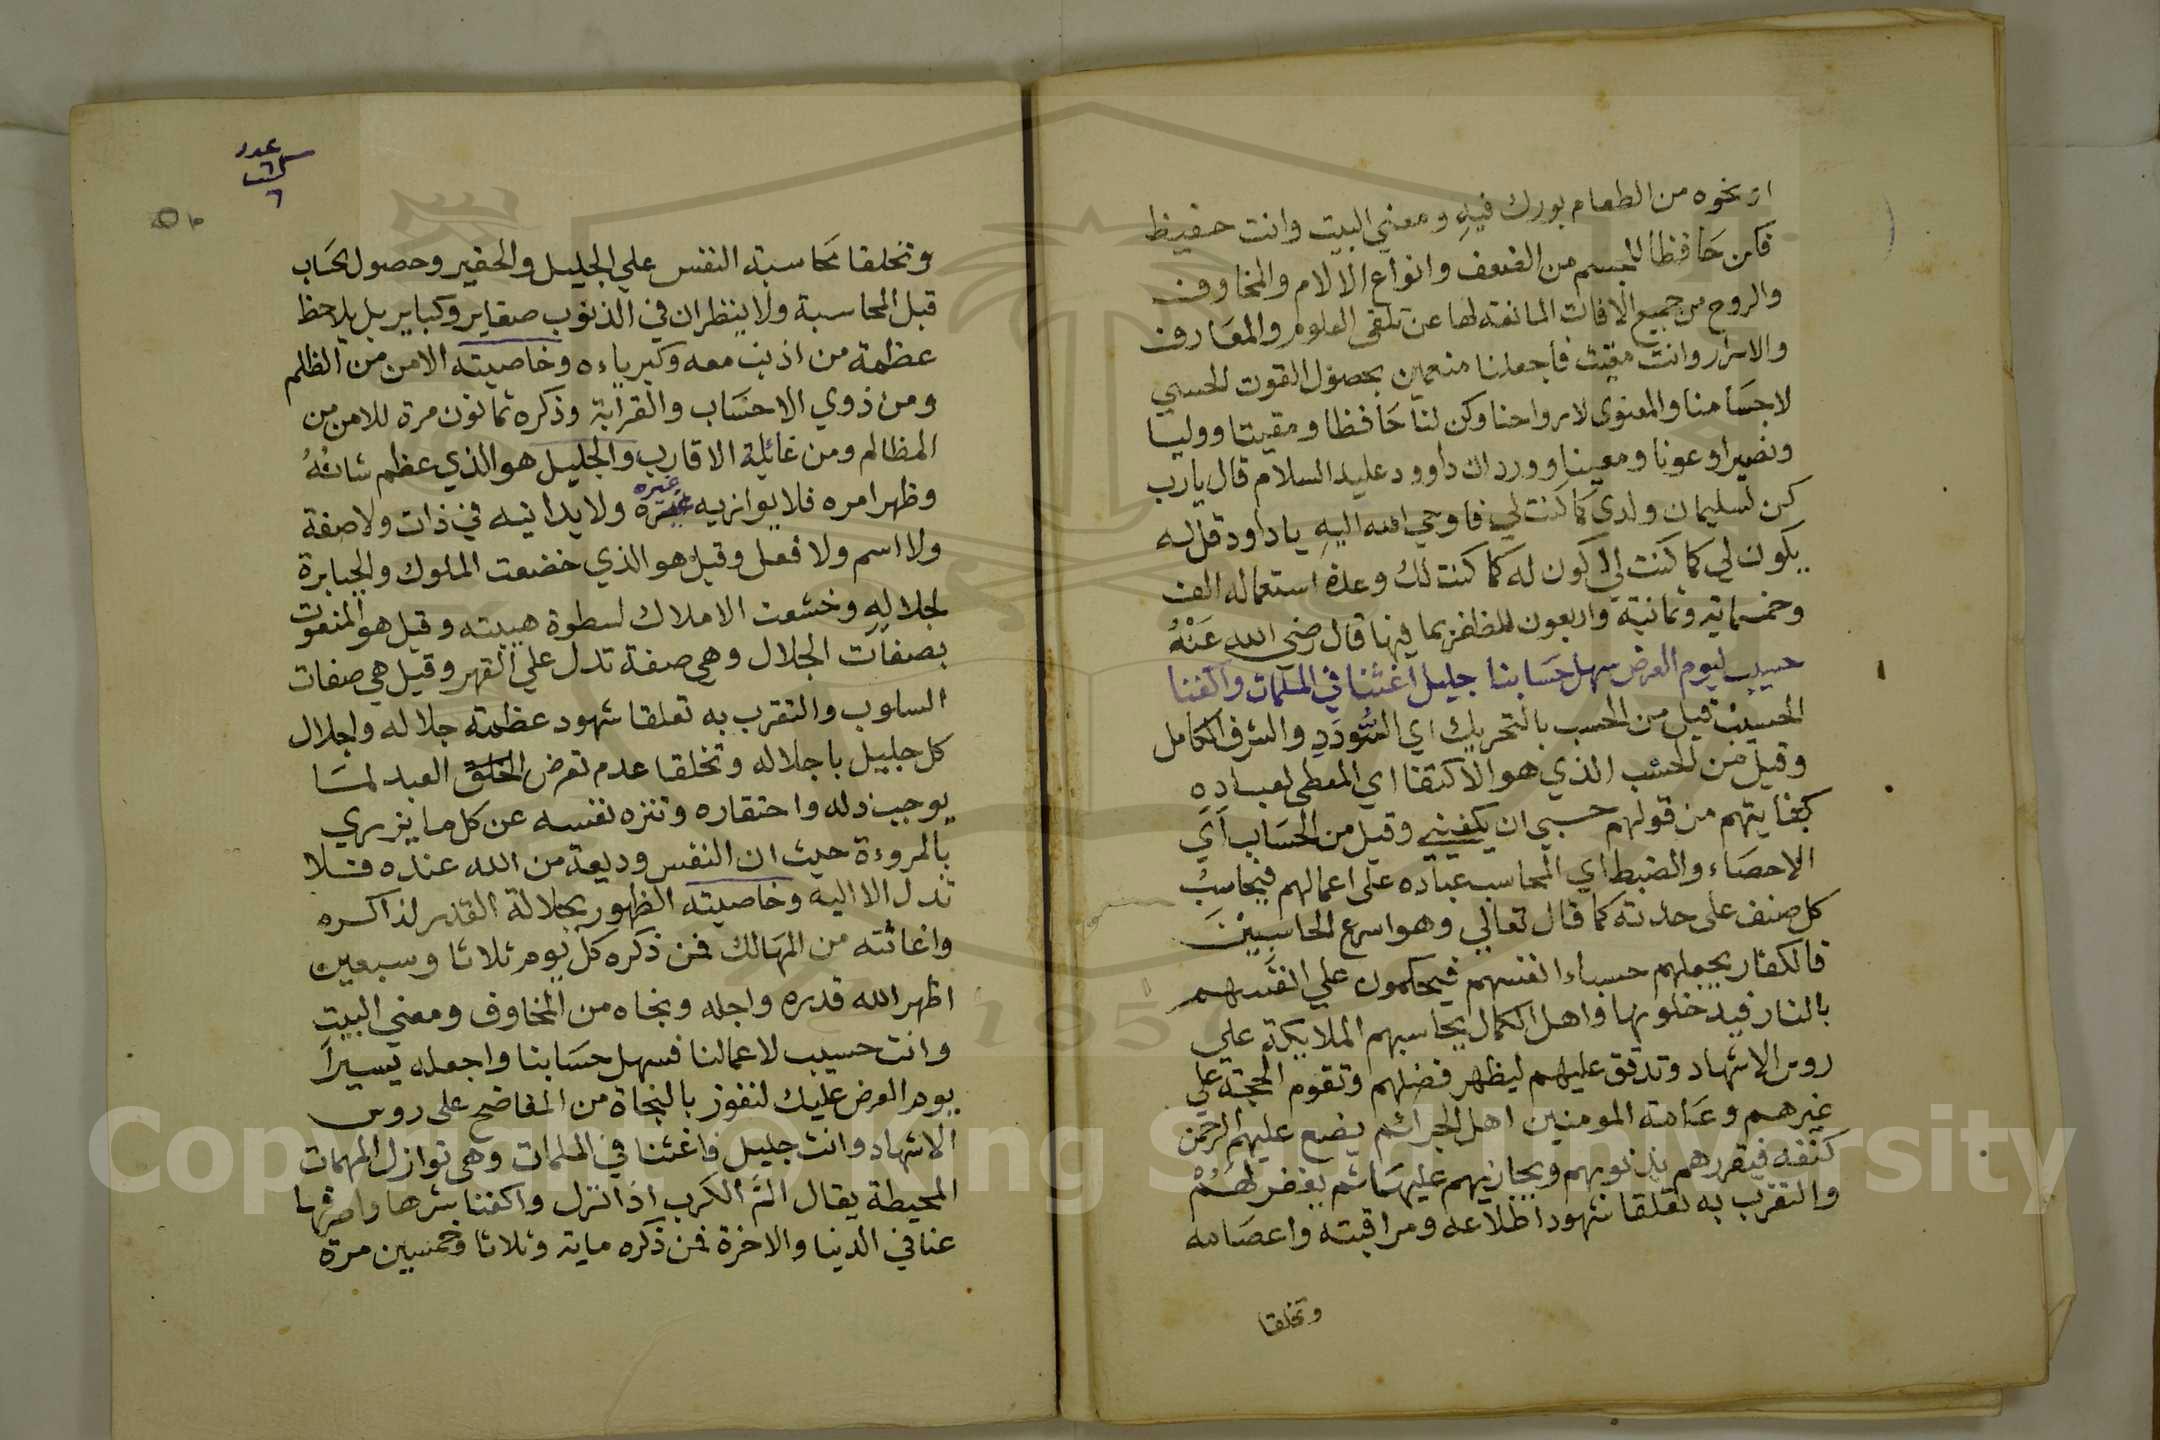 او نحوه من الطعام بورك فيهِ ومعني البيت وانت حفيظ
فكن حَافظاً للجسم من الضعف وانواع الالام والمخاوف
والروح من جميع الافات المانعة لها عن تلقي العلوم والمعَارف
والاسرار وانت مقيت فاجعلنا منعمين بحصول القوت الحسي
لاجسَامنا والمعنوي لارواحنا وكن لنا حَافظا ومقيتا ووليا
ونصيرا وعونا ومعينا وورد ان داوود عليه السلام قال يارب
كن لسليمان ولدي كما كنت لي فاوحي الله اليهِ ياداود قل له
يكون لي كما كنت لي اكون له كما كنت لك وعدة استعماله الف
وخمسماية وثمانية واربعون للظفر بما فيها قال رضي الله عَنْهُ
حسيب ليوم العرض سهل حسَابنا جليل اغثنا في الملمات واكفنا
الحسيب قيل من الحسب بالتحريك اي السُّودَدِ والشرف الكامل
وقيل من الحسْب الذي هو الاكتفا اي المعطي لعباده
كفايتهم من قولهم حسبي ان يكفيني وقيل من الحسَاب اَي
الاحصَاء والضبط اي المحاسب عباده على اعمالهم فيحاسبُ
كل صنف على حدته كما قال تعالي وهو اسرع الحاسبِيْنَ
فالكفار يجعلهم حسباء انفسهم فيحكمون علي انفسهم
بالنار فيدخلونها واهل الكمال يحاسبهم الملايكة علي
روس الاشهاد وتدقق عليهم ليظهر فضلهم وتقوم الحجة علي
غيرهم وعَامة المومنين اهل الجرائم يضع عليهم الرحمن
كنفه فيقررهم بذنوبهم ويجازيهم عليهَا ثم يغفر لهُمْ
والتقرّب به تعلقا شهود اطلاعه ومراقبته واعصَامه
وتخلقا
عدد
٦
وتخلقا محَاسبة النفس علي الجليل والحقير وحصول الحسَاب
قبل المحاسبة ولا ينظر ان في الذنوب صغاير وكباير بل يلاحظ
عظمة من اذنب معه وكبرياءه وخاصيته الامن من الظالم
ومن ذوي الاحسَاب والقرابة وذكره ثمانون مرة للامن من
المظالم ومن غائلة الاقارب والجليل هو الذي عظم شانُهُ
وظهر امره فلا يوازيه غيره ولا يدانيه في ذات ولا صفة
غيره
ولا اسم ولا فعل وقيل هو الذي خضعت الملوك والجبابرة
لجلالهِ وخشعت الاملاك لسطوة هيبته وقيل هو المنعوت
بصفات الجلال وهي صفة تدل علي القهر وقيل هي صفات
السلوب والتقرب به تعلقا شهود عظمة جلاله واجلال
كل جليل باجلاله وتخلقا عدم تعرض الخلق العبد لمَا
يوجب ذله واحتقاره وتنزه نفسه عن كل ما يزري
بالمروءة حيث ان النفس وديعة من الله عنده فلا
تدل الا اليه وخاصيته الظهور بجلالة القدر لذاكره
واغاثته من المهَالك فمن ذكره كل يوم ثلاثا وسبعين
اظهر الله قدره واجله ونجاه من المخاوف ومعني البيت
وانت حسيب لاعمالنا فسهل حسَابنا واجعله يسيراً
يوم العرض عليك لنفوز بالنجاة من المفاضح على روس
الاشهاد وانت جليل فاغثنا في الملمات وهي نوازل المهمات
المحيطة يقال المَّ الكرب اذا نزل واكفنا شرها واصرفها
عنا في الدنيا والاخرة فمن ذكره ماية وثلاثا وخمسين مرة
Copyright © King Saud University
1957